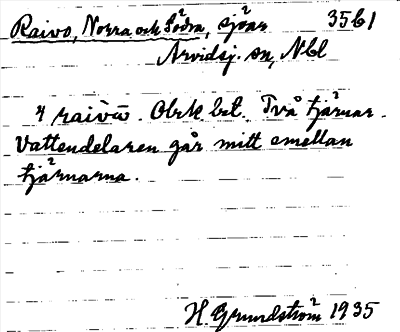 Raivo, Norra och Södra, sjöar 35b1
Arvidsj. sn, Nbl
Obek bet. Två tjärnar.
Vattendelaren går mitt emellan
tjärnarna.
H. Grundström 1935